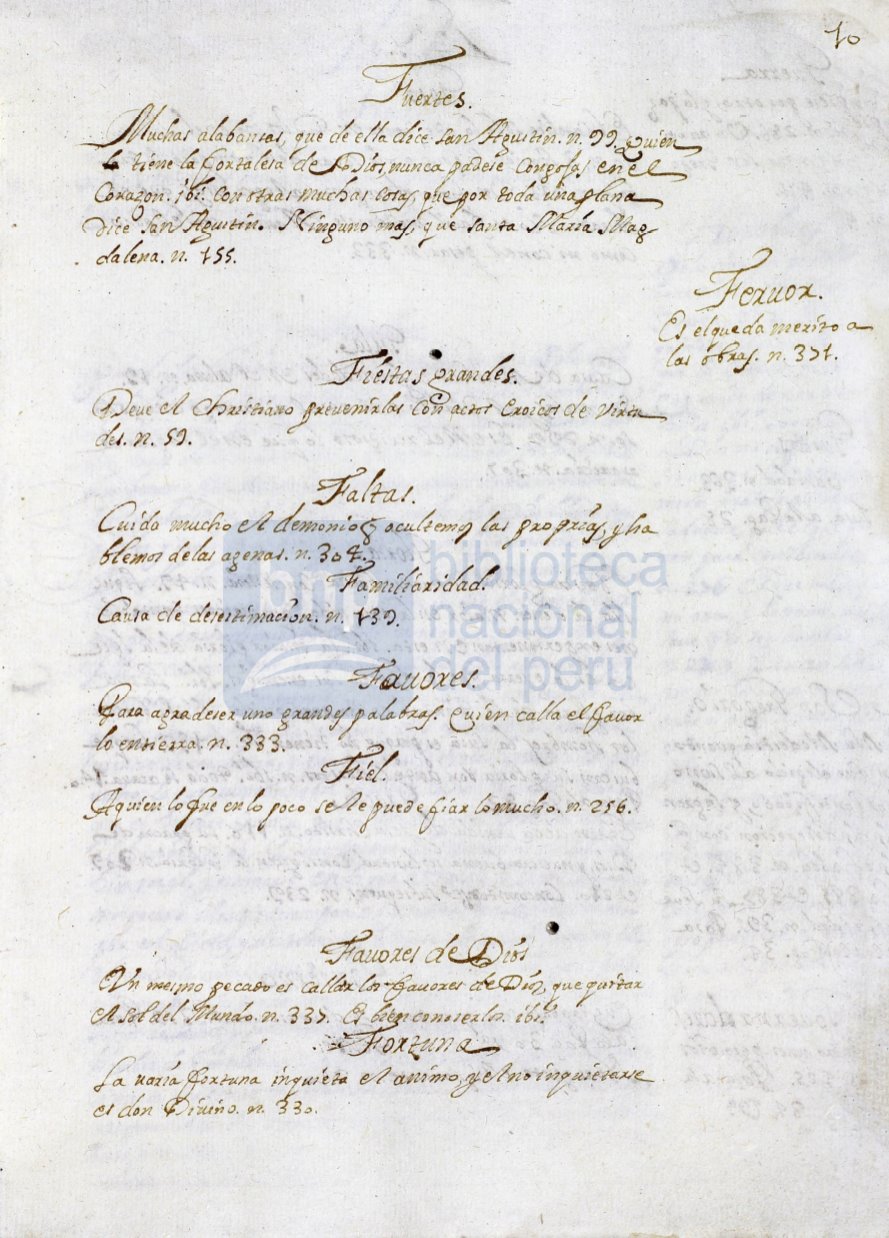 10
Fuertes.
Muchas alabansas, que de ella dice San Agustin. n. 99. Quien
tiene la fortalesa de Dios, nunca padese congojas en el
Corazon. ibi. con otras muchas cosas, que por toda una plana
dice San Agustin. Ninguno mas, que Santa Maria Mag-
dalena. n. 155.
Feruor.
Es el que da merito a
las obras. n. 371.
Fiestas grandes.
Deve el Christiano prevenirlas con actos eroicos de virtu
des. n. 59.
Faltas.
Cuida mucho el demonio q ocultemos las proprias, y ha
blemos de las agenas. n. 304.
Familiaridad.
Causa de desestimacion. n. 139.
Favores.
Para agradeser uno grandes palabras. Quien calla el favor
lo entierra. n. 333.
Fiel.
A quien lo fue en lo poco se le puede fiar lo mucho. n. 256.
Favores de Dios
Un mesmo pecado es callar los favores de Dios, que quitar
el sol del Mundo. n. 337. Es bien conoserlos. ibi.
Fortuna
La varia fortuna inquieta el animo, y el no inquietarse
es don Divino. n. 330.
bnp biblioteca
nacional
del perú